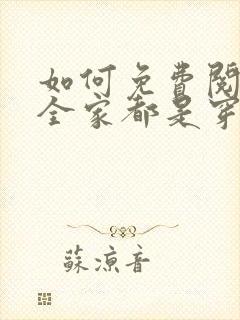 如何免費閱
全家都是穿
蘇涼音